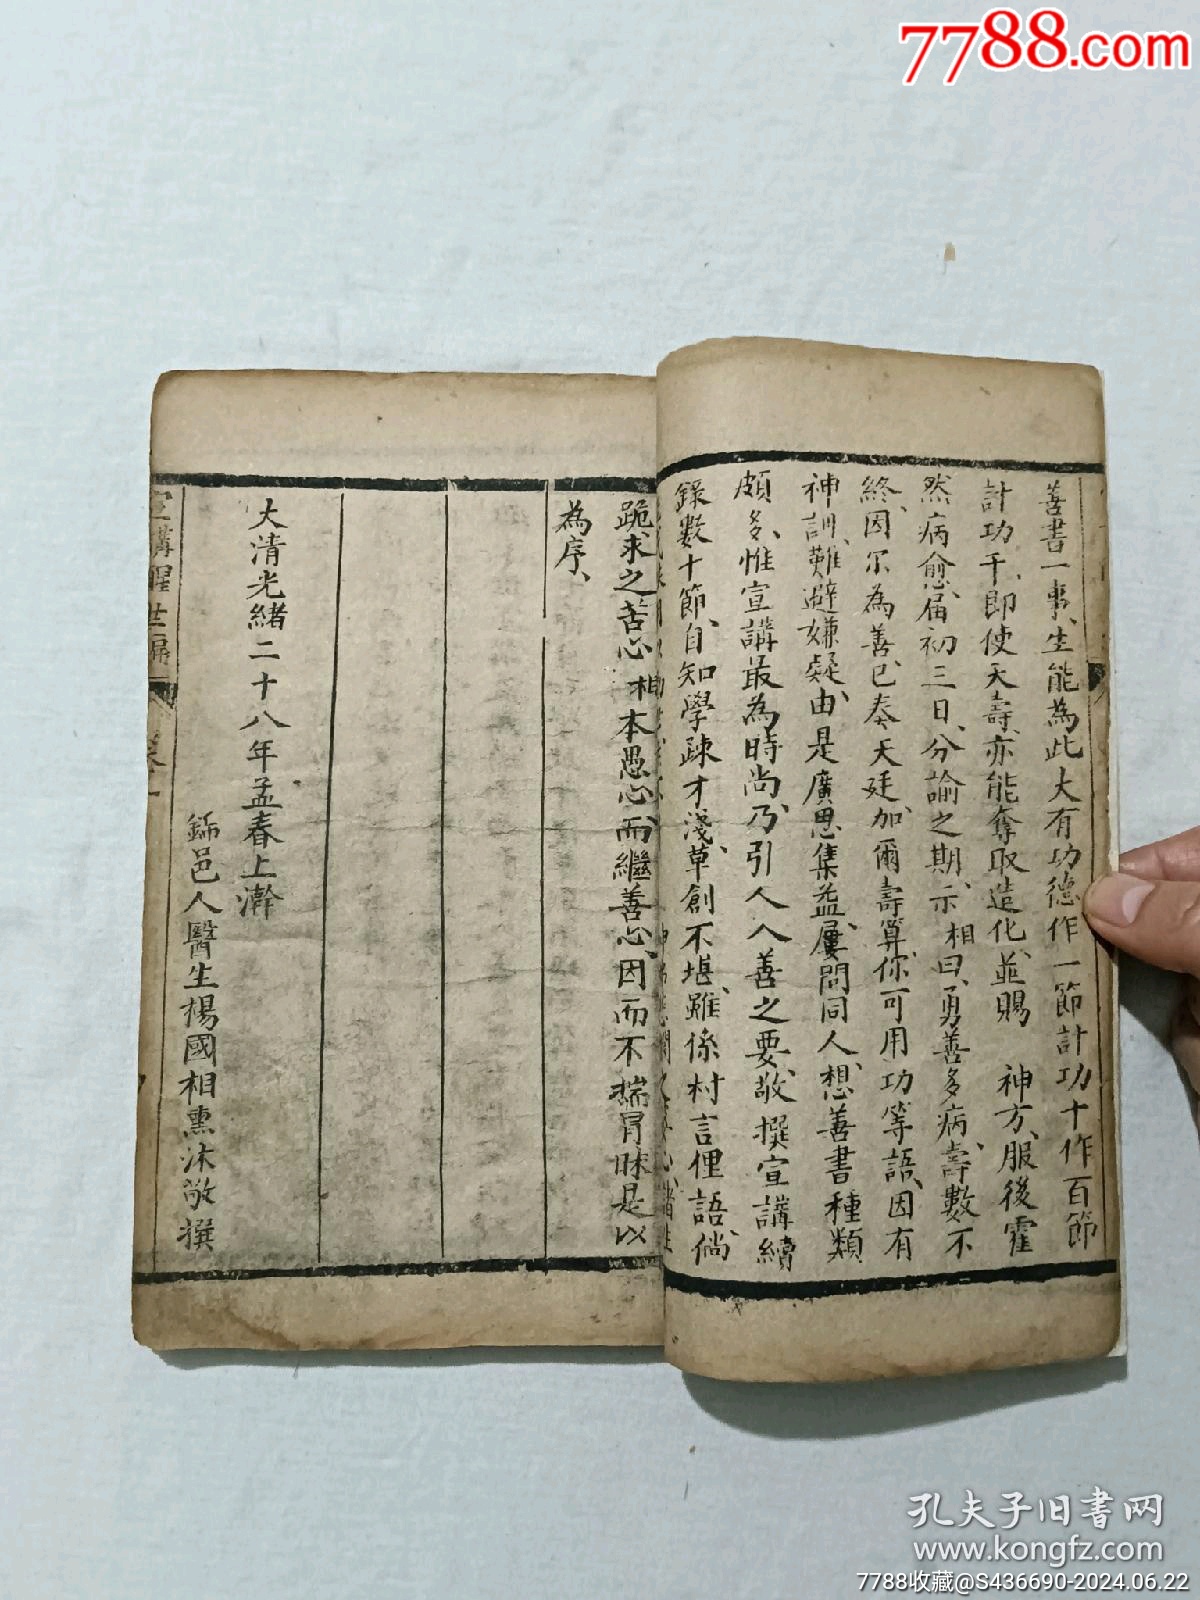 7788.com
善書一事、生能為此大有功德作一節計功十作百節
計功千、即使夭壽、亦能奪取造化、並賜 神方、服後霍
然病愈、屆初三日、分諭之期、示相曰、勇善多病、壽數不
終、因尔為善、已奏天廷、加爾壽算、你可用功等語、因有
神訓、難避嫌疑、由是廣思集益、屢問同人、想善書種類
頗多、惟宣講最為時尚、乃引人入善之要、敬撰宣講續
錄數十節、自知學疎才淺、草創不堪、雖係村言俚語、倘
跪求之苦心相本愚心、而繼善心、因而不揣冐昧是以
為序、
大清光緒二十八年孟春上澣
邑人醫生楊國相熏沐敬撰
宣講醒世編
孔夫子旧書网
www.kongfz.com
7788收藏@S436690-2024.06.22